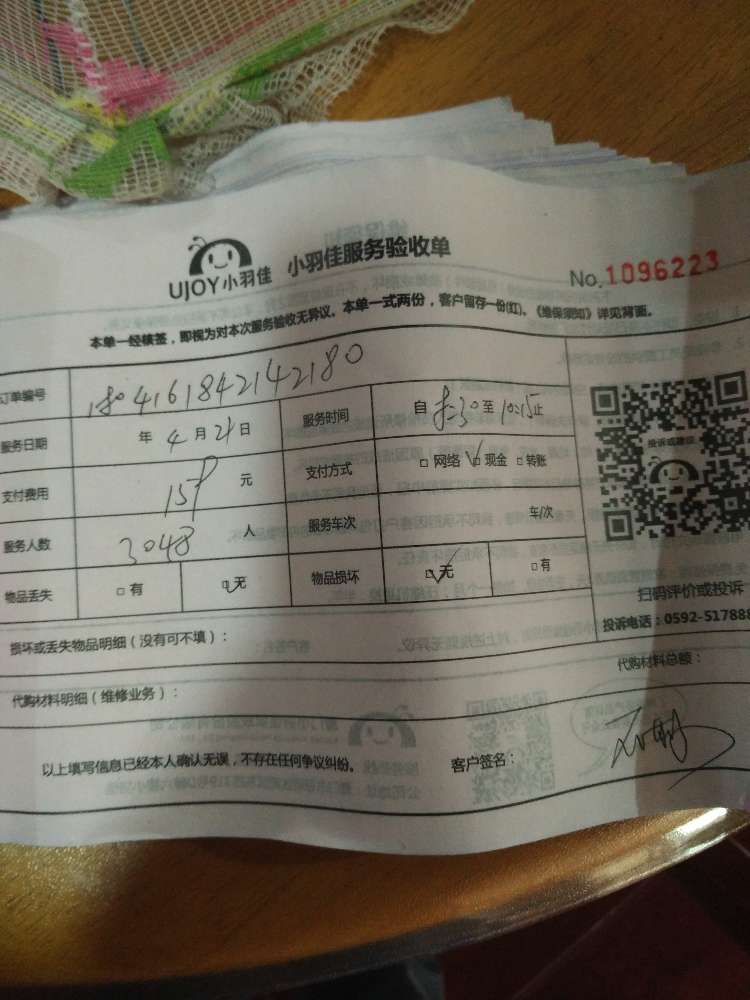 UJOY小羽佳 小羽佳服务验收单
No.1096223
本单一经核签，即视为对本次服务验收无异议。本单一式两份，客户留存一份(红)。《维保须知》详见背面。
订单编号 1804161842142180
服务日期 年 4 月 21 日 服务时间 自 8:30 至 10:15 止
支付费用 159 元 支付方式 □ 网络 ☑ 现金 □ 转账
服务人数 3048 人 服务车次 车/次
物品丢失 □ 有 ☑ 无 物品损坏 ☑ 无 □ 有
投诉或建议
扫码评价或投诉
投诉电话：0592-517888
损坏或丢失物品明细（没有可不填）：
代购材料明细（维修业务）： 代购材料总额：
以上填写信息已经本人确认无误，不存在任何争议纠纷。 客户签名：